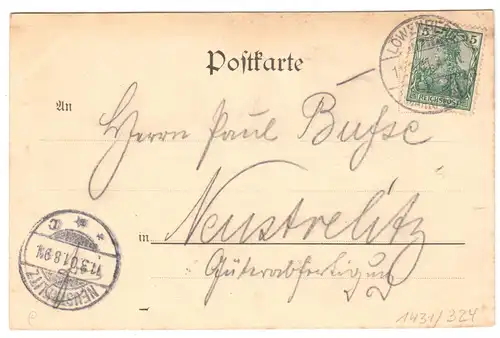 Postkarte
5 5
REICHSPOST
An
Herrn Paul Busse
in Neustrelitz
Güterabfertigung
NEUSTRELITZ
1431/324